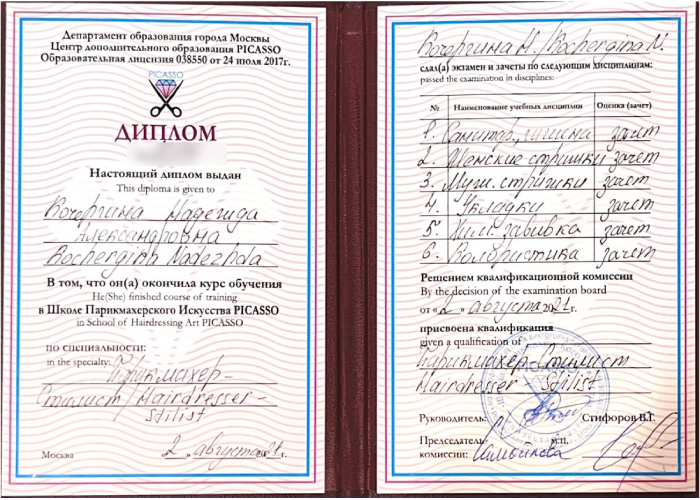 Департамент образования города Москвы
Центр дополнительного образования PICASSO
Образовательная лицензия 038550 от 24 июля 2017г.
PICASSO
ДИПЛОМ
Настоящий диплом выдан
This diploma is given to
Кочергина Надежда
Александровна
Kochergina Nadezhda
В том, что он(а) окончила курс обучения
He(She) finished course of training
в Школе Парикмахерского Искусства PICASSO
in School of Hairdressing Art PICASSO
по специальности:
in the specialty: Парикмахер-
Стилист/Hairdresser-
stilist
Москва 2 „ августа 2021г.
Кочергина Н./Kochergina N.
сдал(а) экзамен и зачеты по следующим дисциплинам:
passed the examination in disciplines:
№ Наименование учебных дисциплин Оценка (зачет)
1. Санитар., гигиена зачет
2. Женские стрижки зачет
3. Муж. стрижки зачет
4. Укладки зачет
5. Хим. завивка зачет
6. Колористика зачет
Решением квалификационной комиссии
By the decision of the examination board
от «2 „ августа 2021г.
присвоена квалификация
given a qualification of
Парикмахер-Стилист
Hairdresser-stilist
Руководитель: Стифоров В.Г.
Председатель м.п.
комиссии: